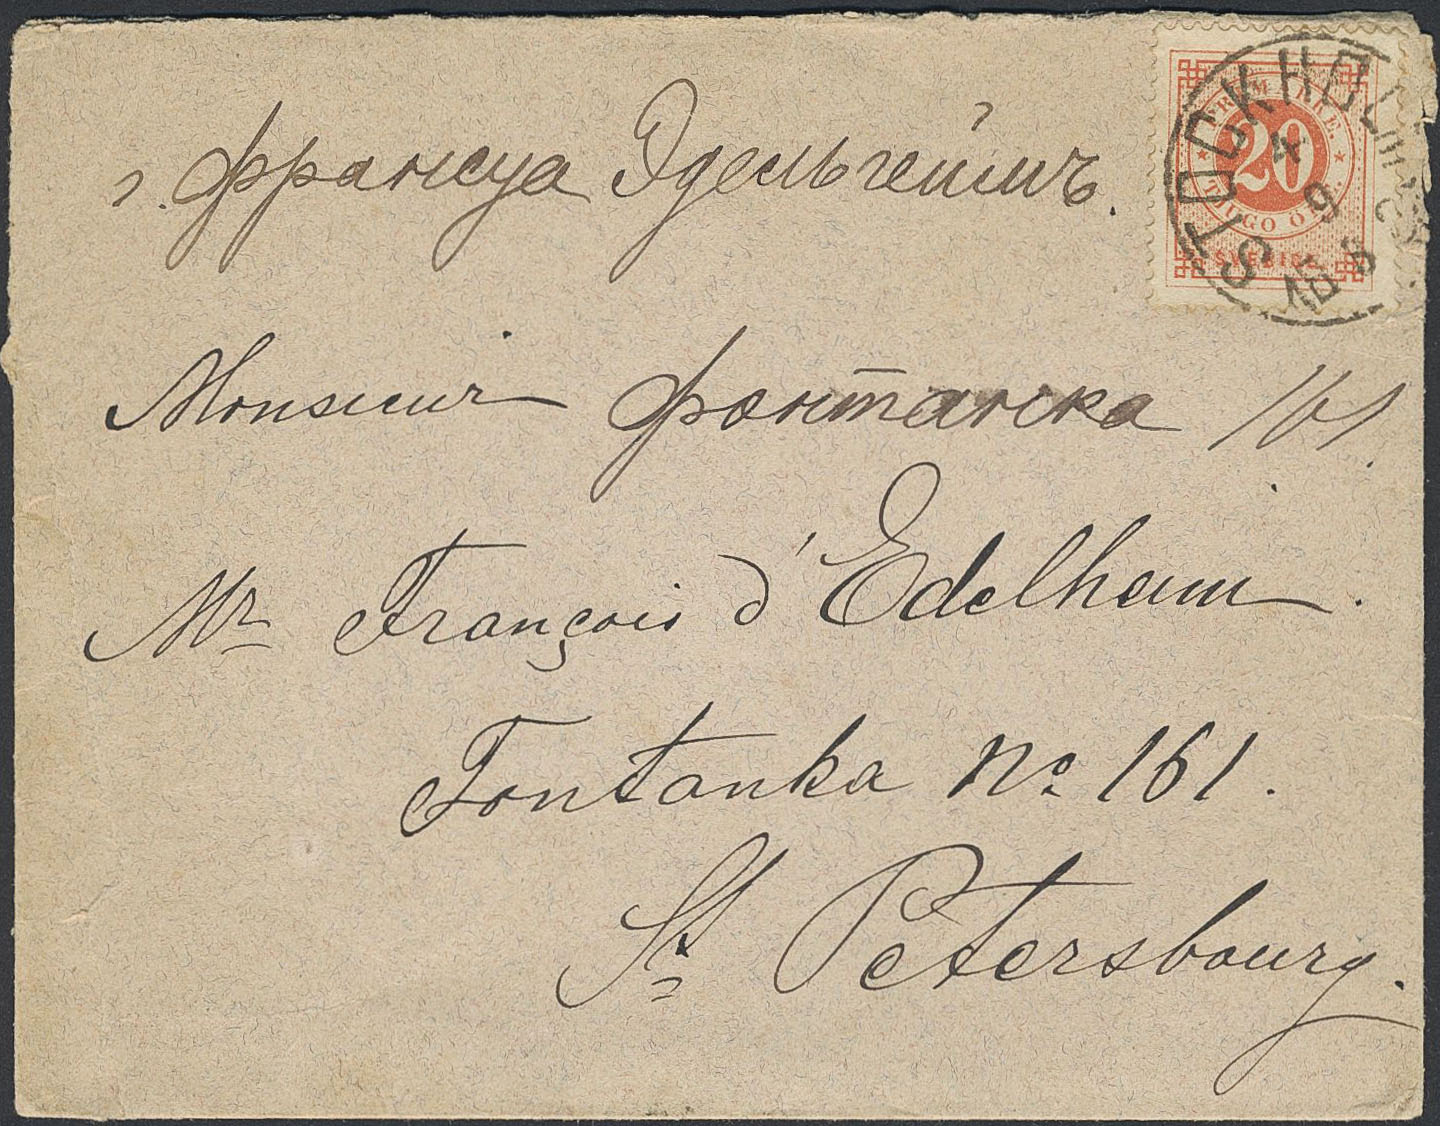 г. Франсуа Эдельгеймъ.
FRIMÄRKE
20
TJUGO ÖRE
SVERIGE
STOCKHOLM
4 9
Monsieur Фонтанка 161.
Mr François d'Edelheim.
Fontanka No 161.
St Petersbourg.